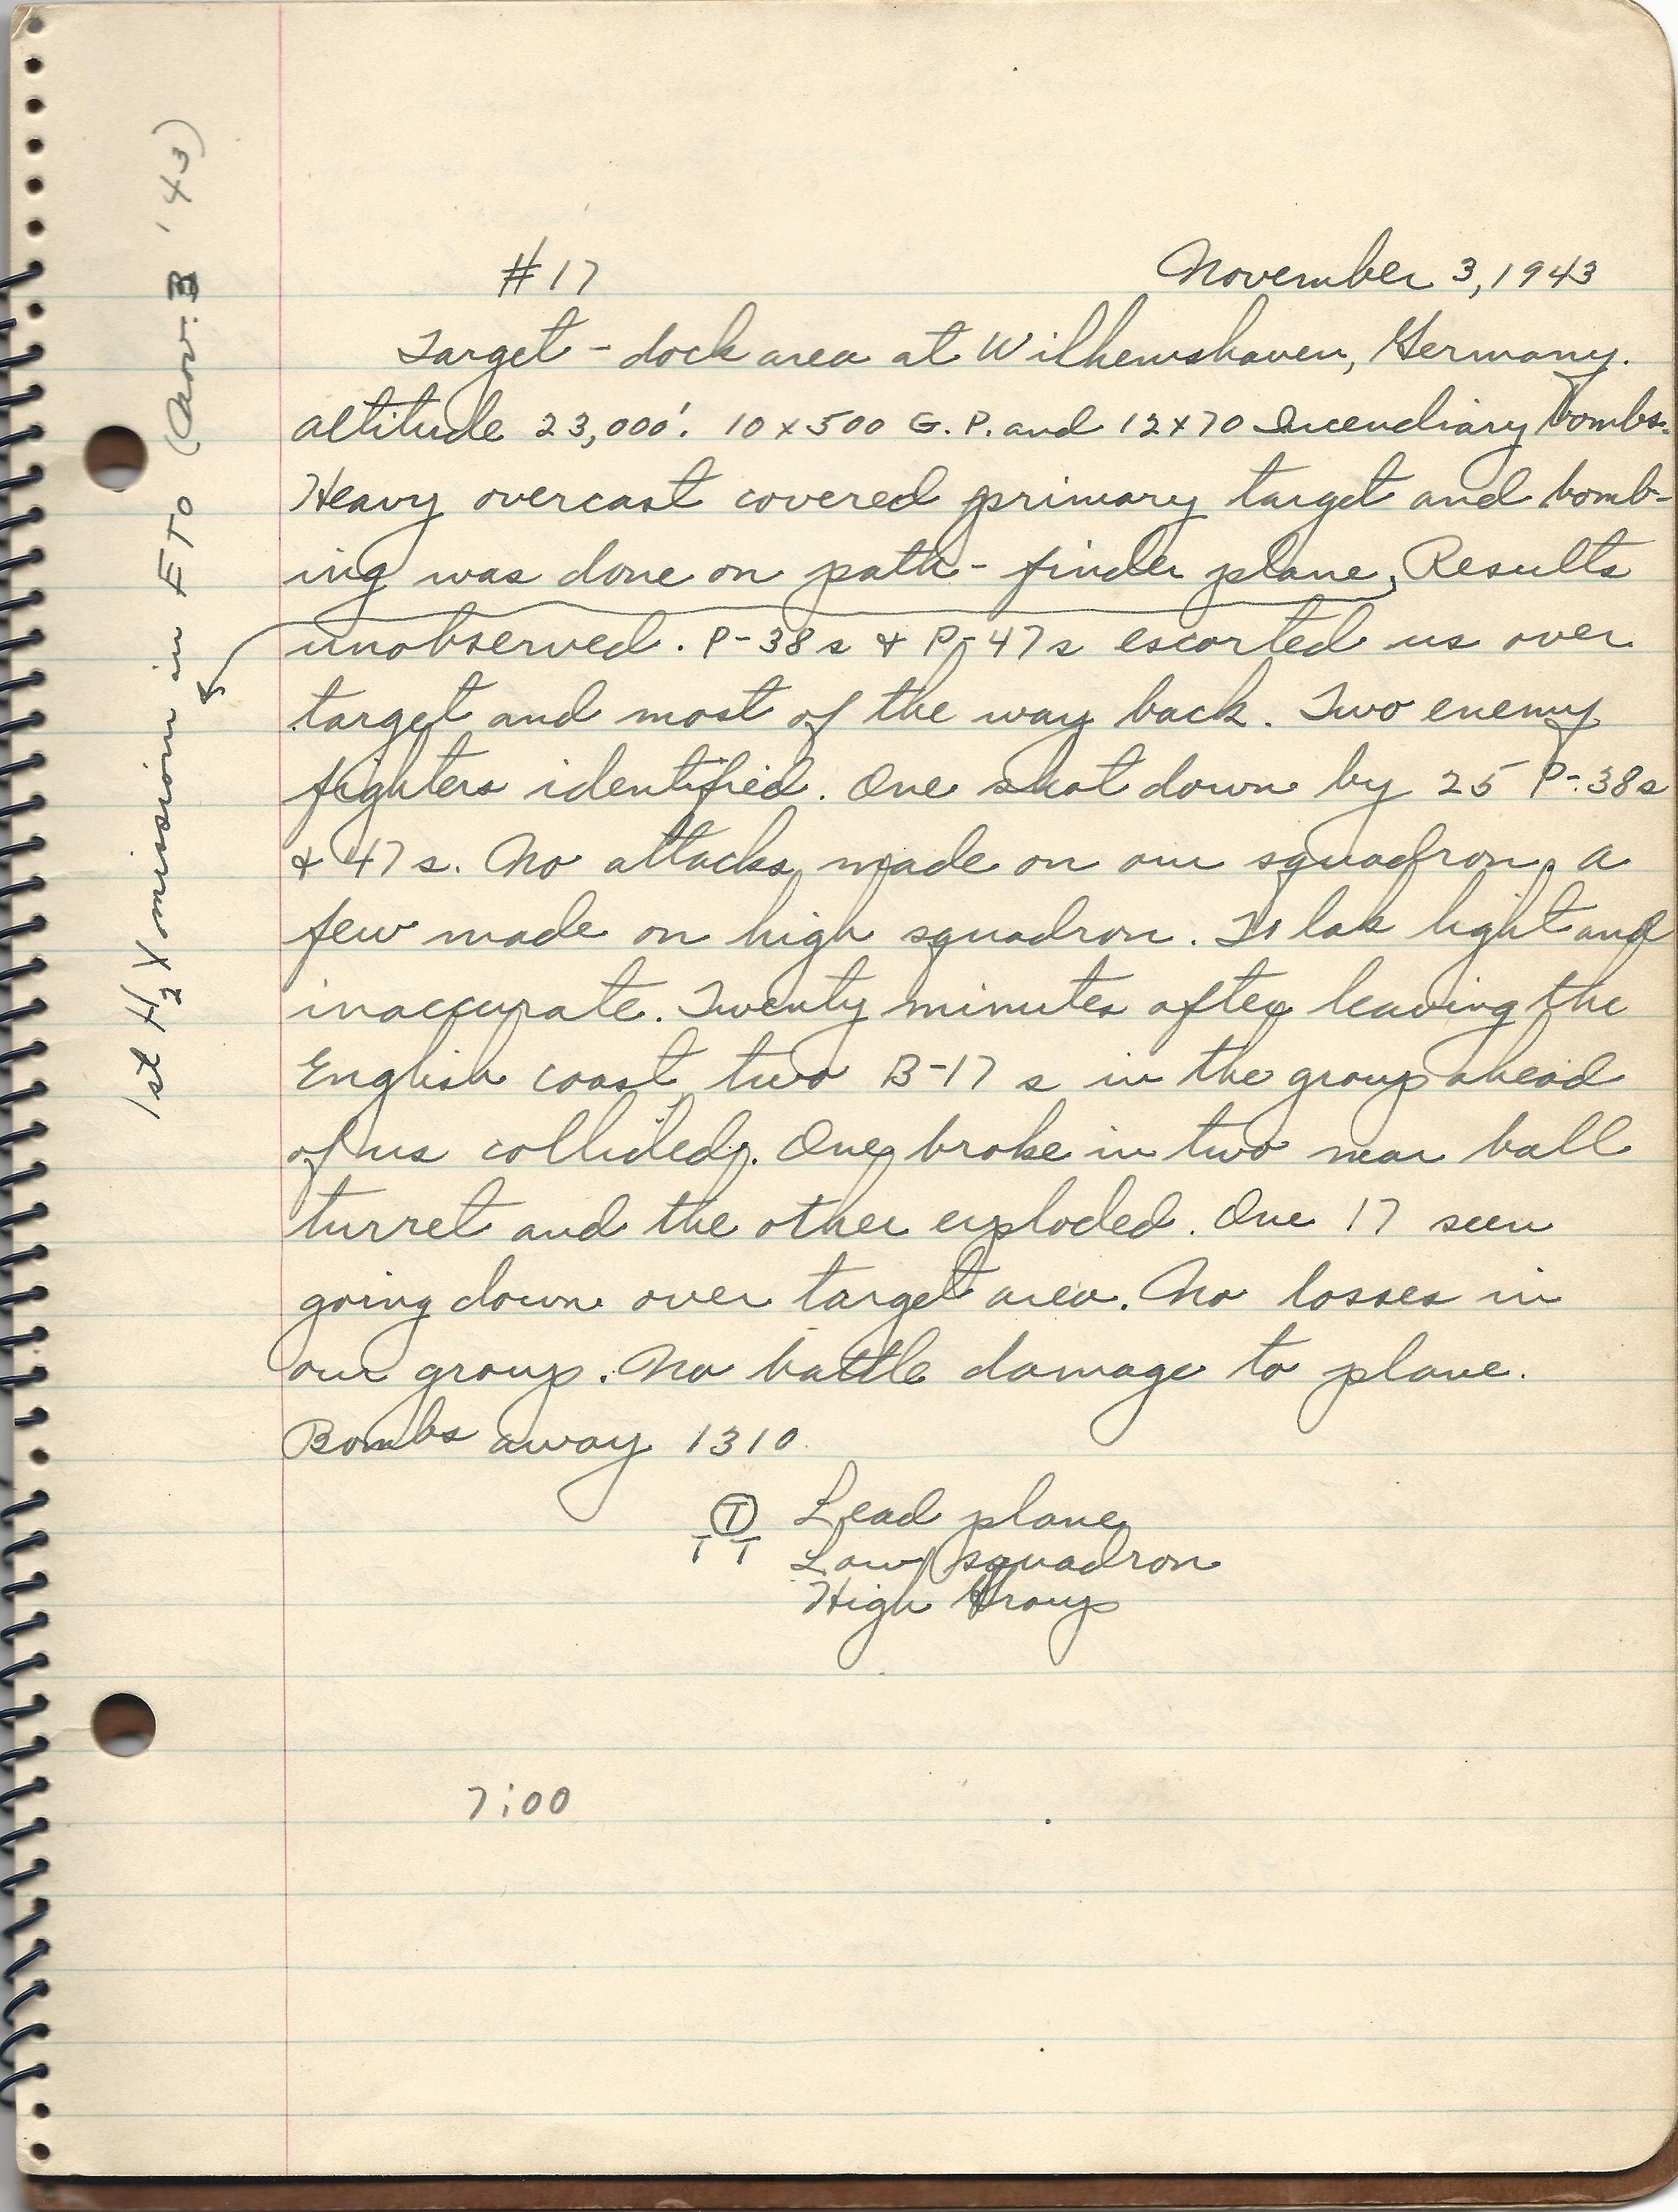 #17 November 3, 1943
Target - dock area at Wilhemshaven, Germany.
altitude 23,000'. 10x500 G.P. and 12x70 Incendiary bombs.
Heavy overcast covered primary target and bomb-
ing was done on path-finder plane. Results
unobserved. P-38s & P-47s escorted us over
target and most of the way back. Two enemy
fighters identified. One shot down by 25 P-38s
& 47s. No attacks made on our squadron, a
few made on high squadron. Flak light and
inaccurate. Twenty minutes after leaving the
English coast two B-17s in the group ahead
of us collided. One broke in two near ball
turret and the other exploded. One 17 seen
going down over target area. No losses in
our group. No battle damage to plane.
Bombs away 1310
T Lead plane
T T Low squadron
High Group
7:00
1st H2X mission in ETO (Nov. 3 '43)